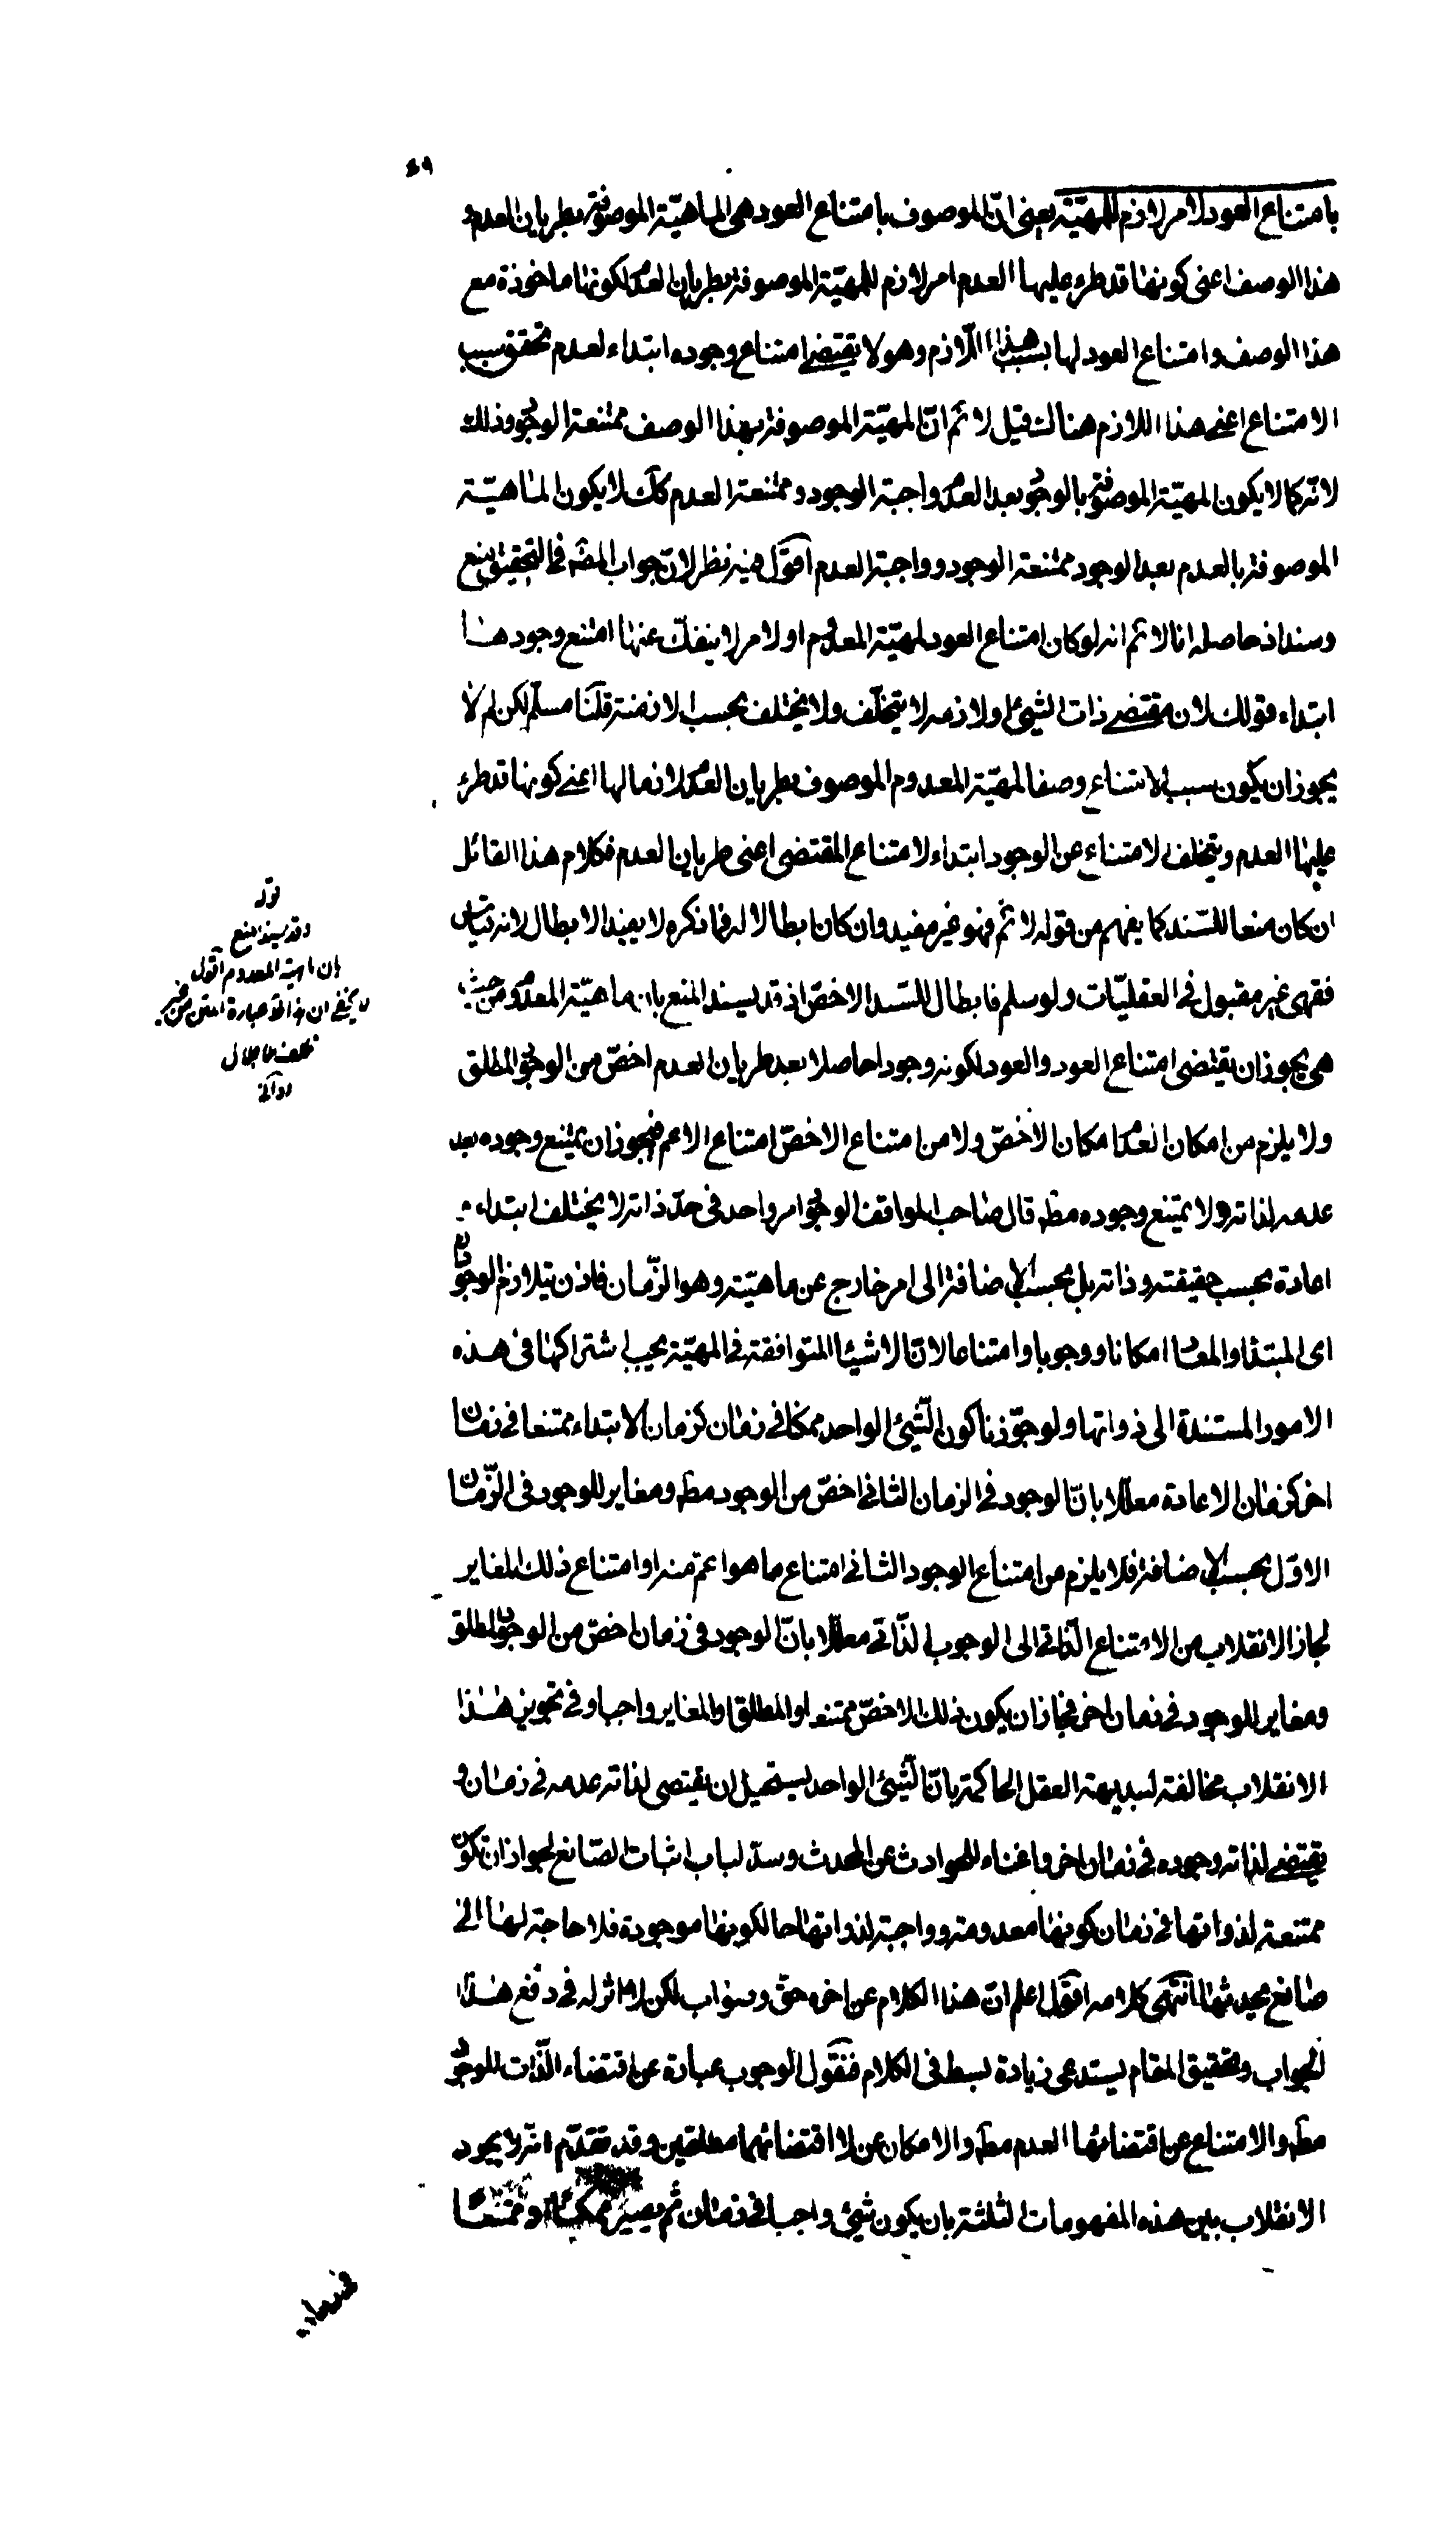 ٤٩
بامتناع العود لامر لازم للمهيّة يعنى انّ الموصوف بامتناع العود هى الماهيّة الموصوفة بطريان العدم و
هذا الوصف اعنى كونها قد طرء عليها العدم امر لازم للمهيّة الموصوفة بطريان العدم لكونها ماخوذة مع
هذا الوصف و امتناع العود لها بسبب هذا اللّازم وهو لا يقتضى امتناع وجوده ابتداء لعدم تحقق سبب
الامتناع اعنى هذا اللازم هناك قيل لا ثم انّ المهيّة الموصوفة بهذا الوصف ممتنعة الوجود وذلك
لانّه كما لا يكون المهيّة الموصوفة بالوجود بعد العدم واجبة الوجود و ممتنعة العدم كك لا يكون الماهيّة
الموصوفة بالعدم بعد الوجود ممتنعة الوجود و واجبة العدم اقول فيه نظر لانّ جواب المصّه فى التحقيق منع
وسند اذ حاصله انا لا ثم انه لو كان امتناع العود لمهيّة المعدوم او لامر لا ينفكّ عنها امتنع وجودها
ابتداء قولك لان مقتضى ذات الشيئ او لازمه لا يتخلّف ولا يختلف بحسب الازمنة قلنا مسلّم لكن لم لا
يجوز ان يكون سبب الامتناع وصفا لمهيّة المعدوم الموصوف بطريان العدم لازما لها اعنى كونها قد طرء
عليها العدم ويتخلف الامتناع عن الوجود ابتداء لامتناع المقتضى اعنى طريان العدم فكلام هذا القائل
ان كان منعا للسّند كما يفهم من قوله لا ثم فهو غير مفيد وان كان ابطالا له فما ذكره لا يفيد الابطال لانه قياس
فقهى غير مقبول فى العقليّات ولو سلم فابطال للسّند الاخصّ اذ قد يسند المنع بان ماهيّة المعدوم من حيث
هى يجوز ان يقتضى امتناع العود والعود لكونه وجودا حاصلا بعد طريان العدم اخصّ من الوجود المطلق
ولا يلزم من امكان العام امكان الاخصّ ولا من امتناع الاخصّ امتناع الاعم فيجوز ان يمتنع وجوده بعد
عدمه لذاته ولا يمتنع وجوده مطه قال صاحب المواقف الوجود امر واحد فى حدّ ذاته لا يختلف ابتداء و
اعادة بحسب حقيقته و ذاته بل بحسب الاضافة الى امر خارج عن ماهيّته وهو الزّمان فاذن يتلازم الوجودان
اى المبتدا والمعاد امكانا ووجوبا وامتناعا لانّ الاشيا المتوافقة فى المهيّة يجب اشتراكها فى هذه
الامور المستندة الى ذواتها ولو جوّزنا كون الشّيئ الواحد ممكنا فى زمان كزمان الابتداء ممتنعا فى زمان
اخر كزمان الاعادة معلّلا بانّ الوجود فى الزمان الثانى اخصّ من الوجود مطه ومغاير للوجود فى الزّمان
الاوّل بحسب الاضافة فلا يلزم من امتناع الوجود الثانى امتناع ما هو اعمّ منه او امتناع ذلك المغاير
لجاز الانقلاب من الامتناع الذّاتى الى الوجوب الذّاتى معلّلا بانّ الوجود فى زمان اخصّ من الوجود المطلق
ومغاير للوجود فى زمان اخر فجاز ان يكون ذلك الاخصّ ممتنعا والمطلق او المغاير واجبا وفى تجويز هذا
الانقلاب مخالفة لبديهة العقل الحاكمة بانّ الشّيئ الواحد يستحيل ان يقتضى لذاته عدمه فى زمان و
يقتضى لذاته وجوده فى زمان اخر واغناء للحوادث عن المحدث وسدّ لباب اثبات الصّانع لجواز ان تكون
ممتنعة لذواتها فى زمان كونها معدومة و واجبة لذواتها حال كونها موجودة فلا حاجة لها الى
صانع يحدثها انتهى كلامه اقول اعلم انّ هذا الكلام عن اخره حقّ وصواب لكن لا اثر له فى دفع هذا
الجواب وتحقيق المقام يستدعى زيادة بسط فى الكلام فنقول الوجوب عبارة عن اقتضاء الذّات الوجود
مطه والامتناع عن اقتضائها العدم مطه والامكان عن لا اقتضائهما مطلقين و قد تقدّم انّه لا يجوز
الانقلاب بين هذه المفهومات الثلثة بان يكون شيئ واجبا فى زمان ثم يصير ممكنا او ممتنعا
قوله
وقد يسند المنع
بان ماهية المعدوم اقول
لا يخفى ان هذا عبارة